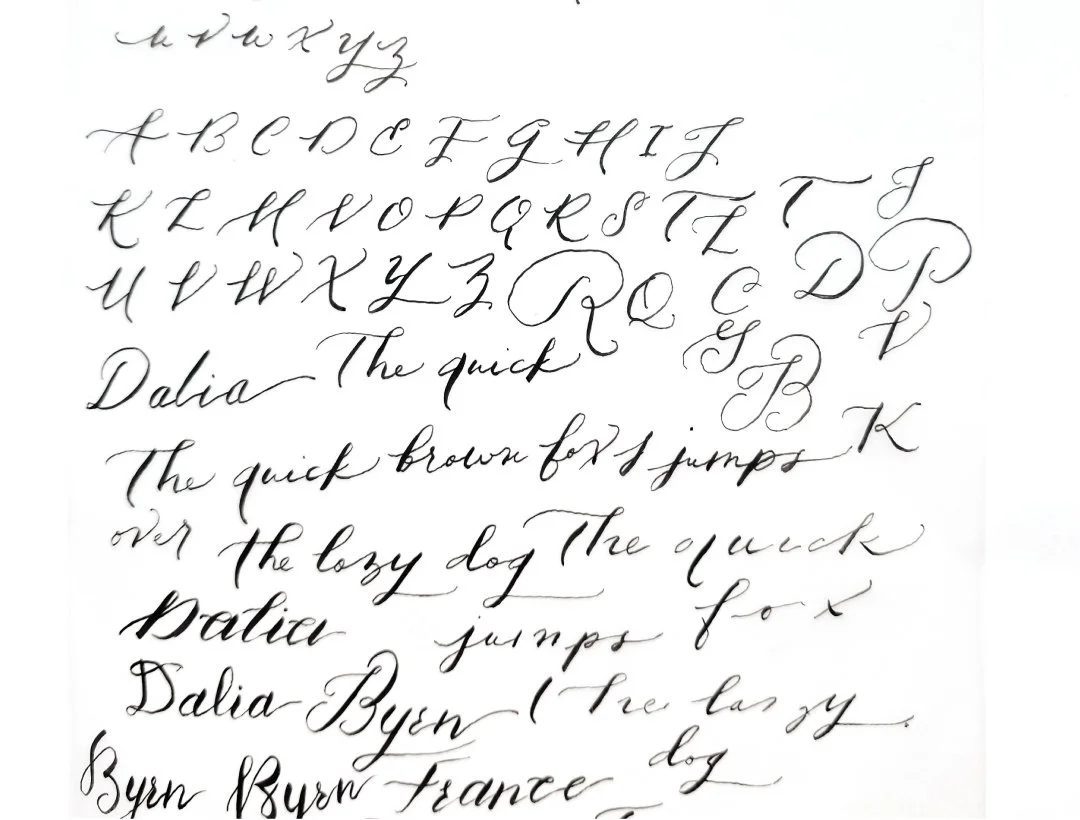 u v w x y z
A B C D E F G H I J
K L M N O P Q R S T L T J
U V W X Y Z R Q C D P
G B V
Dalia The quick
The quick brown fox jumps K
over the lazy dog The quick
Dalia jumps fox
Dalia Byrn The lazy
dog
Byrn Byrn France